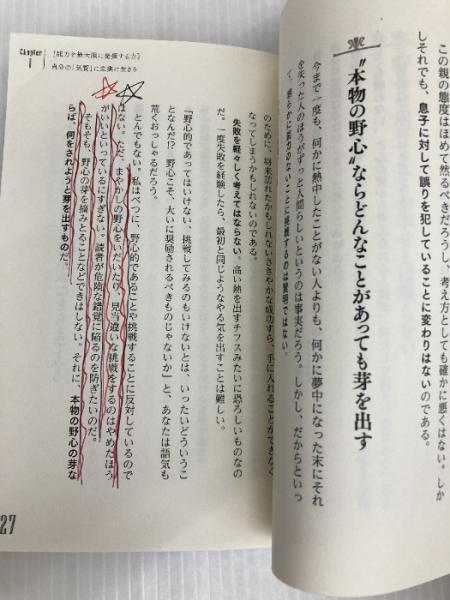 この親の態度はほめて然るべきだろうし、考え方としても確かに悪くはない。しか
しそれでも、息子に対して誤りを犯していることに変わりはないのである。
“本物の野心”ならどんなことがあっても芽を出す
今まで一度も、何かに熱中したことがない人よりも、何かに夢中になった末にそれ
を失った人のほうがずっと人間らしいというのは事実だろう。しかし、だからといっ
て、
のために、将来訪れたかもしれないささやかな成功すら、手に入れることができなく
なってしまうかもしれないのである。
失敗を軽々しく考えてはならない。高い熱を出すチフスみたいに恐ろしいものなの
だ。一度失敗を経験したら、最初と同じようなやる気を出すことは難しい。
「野心的であってはいけない、挑戦してみるのもいけないとは、いったいどういうこ
となんだ!? 野心こそ、大いに奨励されるべきものじゃないか」と、あなたは語気も
荒くおっしゃるだろう。
とんでもない。私はべつに、野心的であることや挑戦することに反対しているので
はない。ただ、まやかしの野心をいだいたり、見当違いな挑戦をするのはやめたほう
がいいといっているにすぎない。読者が危険な錯覚に陥るのを防ぎたいのだ。
そもそも、野心の芽を摘みとることなどできはしない。それに、本物の野心の芽な
らば、何をされようと芽を出すものだ。
Chapter
1
[能力を最大限に発揮する力]
自分の「気質」に忠実に生きる
27